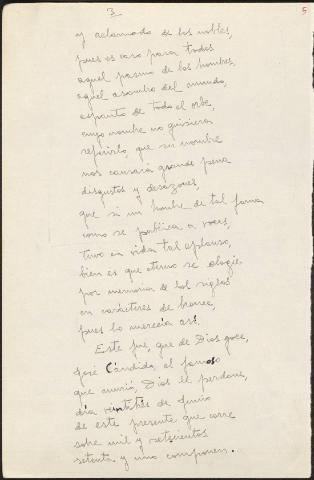 3
5
y aclamado de los nobles,
pues es caso para todos
aquel pasmo de los hombres,
aquel asombro del mundo,
espanto de todo el orbe,
cuyo nombre no quisiera
referirlo, que su nombre
nos causará grande pena
disgustos y desazones,
que si un hombre de tal fama
como se publica a voces,
tuvo en vida tal aplauso,
bien es que eterno se elogie
por memoria de los siglos
en carácteres de bronce,
pues lo merecía así.
Este fue, que de Dios goce,
José Cándido el famoso
que murió, Dios le perdone,
día veintitrés de junio
de este presente que corre
sobre mil y setecientos
setenta y uno componen.